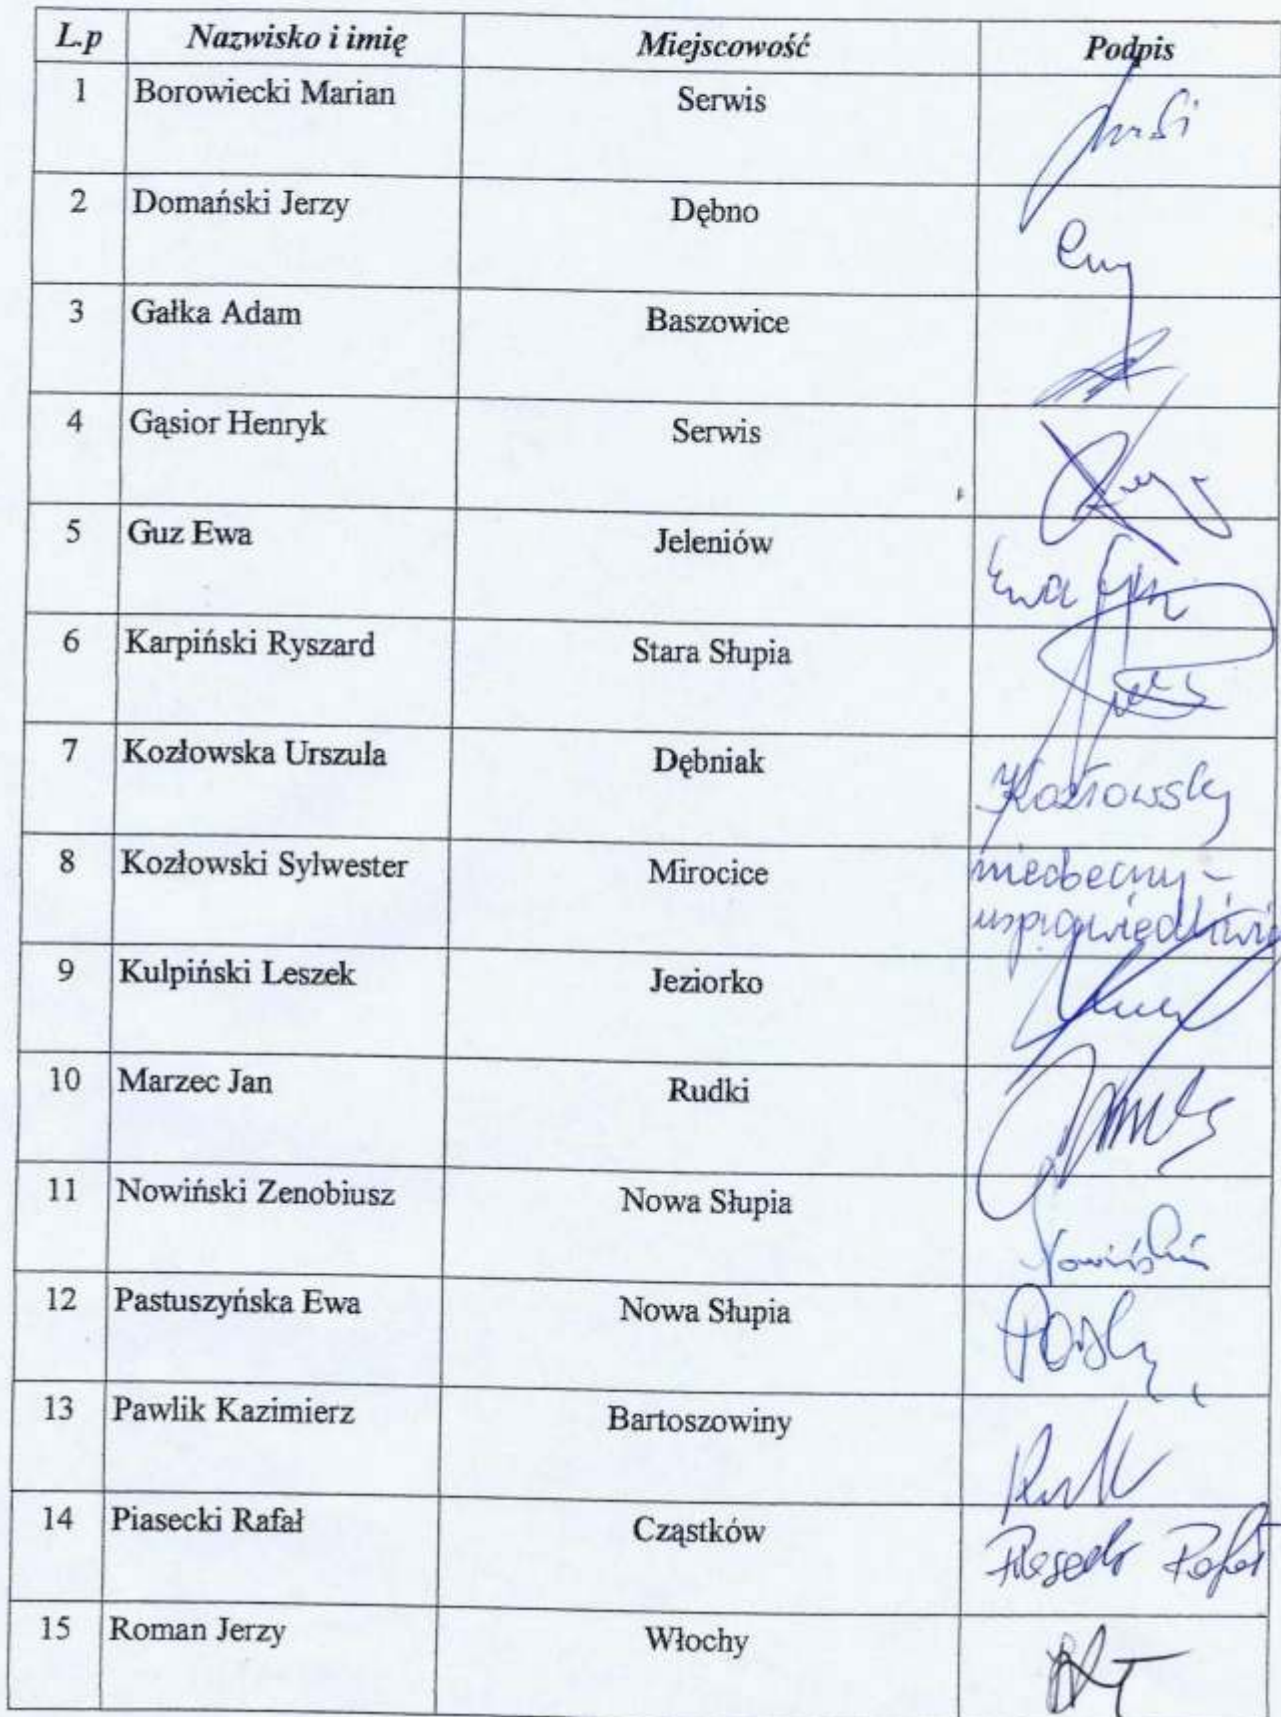 L.p Nazwisko i imię Miejscowość Podpis
1 Borowiecki Marian Serwis
2 Domański Jerzy Dębno
3 Gałka Adam Baszowice
4 Gąsior Henryk Serwis
5 Guz Ewa Jeleniów
Ewa Guz
6 Karpiński Ryszard Stara Słupia
7 Kozłowska Urszula Dębniak
Kozłowska
8 Kozłowski Sylwester Mirocice nieobecny -
usprawiedliwiony
9 Kulpiński Leszek Jeziorko
10 Marzec Jan Rudki
11 Nowiński Zenobiusz Nowa Słupia
Nowiński
12 Pastuszyńska Ewa Nowa Słupia
13 Pawlik Kazimierz Bartoszowiny
14 Piasecki Rafał Cząstków
Piasecki Rafał
15 Roman Jerzy Włochy